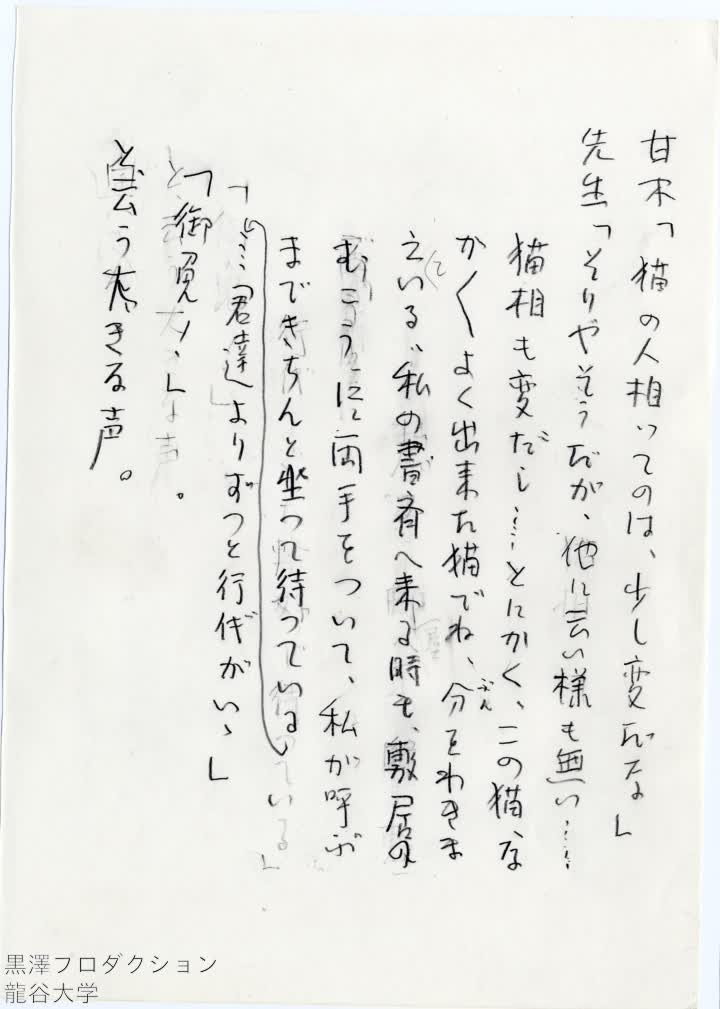 甘木「猫の人相ってのは、少し変だな」
先生「そりやそうだが、他に云い様も無い……
猫相も変だし……とにかく、この猫、な
かくよく出来た猫でね、分をわきま
えている、私の書斉へ来る時も、敷居の
むこうに両手をついて、私が呼ぶ
まできちんと坐って待っている
「……君達よりずっと行儀がいゝ」
「御免、」
と云う大きな声。
黒澤プロダクション
龍谷大学